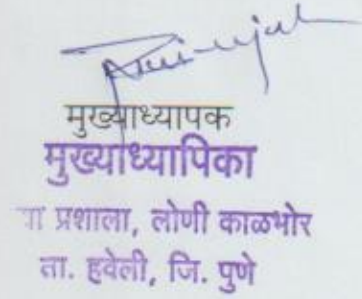 मुख्याध्यापक
मुख्याध्यापिका
प्रशाला, लोणी काळभोर
ता. हवेली, जि. पुणे